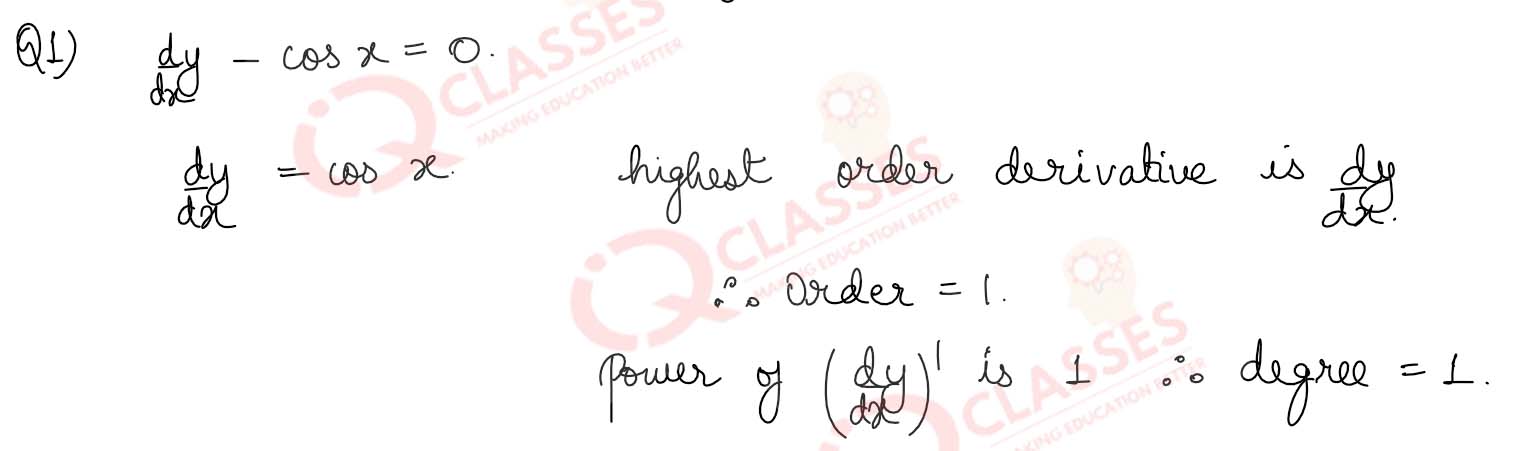 Q1) dy/dx - cos x = 0.
dy/dx = cos x. highest order derivative is dy/dx.
∴ Order = 1.
Power of (dy/dx)^1 is 1 ∴ degree = 1.
iQ CLASSES
MAKING EDUCATION BETTER
iQ CLASSES
MAKING EDUCATION BETTER
CLASSES
MAKING EDUCATION BETTER